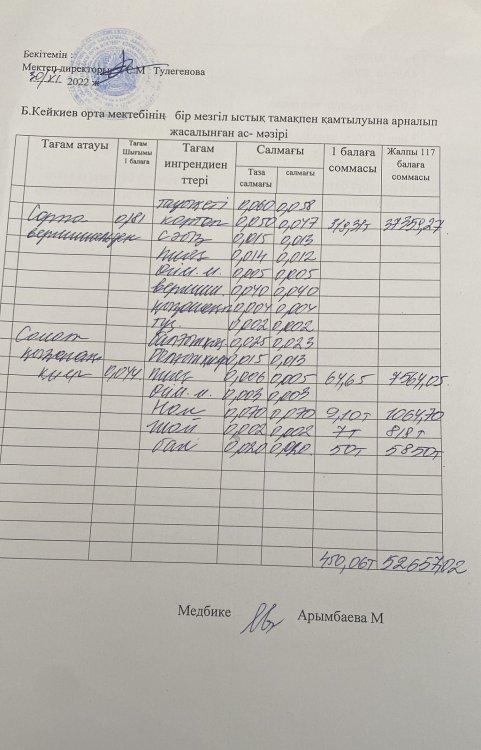 Бекітемін :
Мектеп директоры С.М Тулегенова
30/XI 2022 ж
Б.Кейкиев орта мектебінің бір мезгіл ыстық тамақпен қамтылуына арналып
жасалынған ас- мәзірі
Тағам атауы Тағам Шығымы 1 балаға Тағам ингрендиен ттері Салмағы 1 балаға соммасы Жалпы 117 балаға соммасы
Таза салмағы салмағы
0,060 0,058
Сорпа 0,181 картоп 0,050 0,047 319,31т 37359,27
сәбіз 0,015 0,013
пияз 0,014 0,012
өсім. м. 0,005 0,005
вермиш 0,040 0,040
0,004 0,004
тұз 0,002 0,002
Салат 0,025 0,023
0,015 0,013
қияр 0,044 пияз 0,006 0,005 64,65 7564,05
өсім. м. 0,003 0,003
Нан 0,070 0,070 9,10т 1064,70
шай 0,002 0,002 7т 818т
бал 0,020 0,020 50т 5850т
450,06т 52657,02
Медбике Арымбаева М